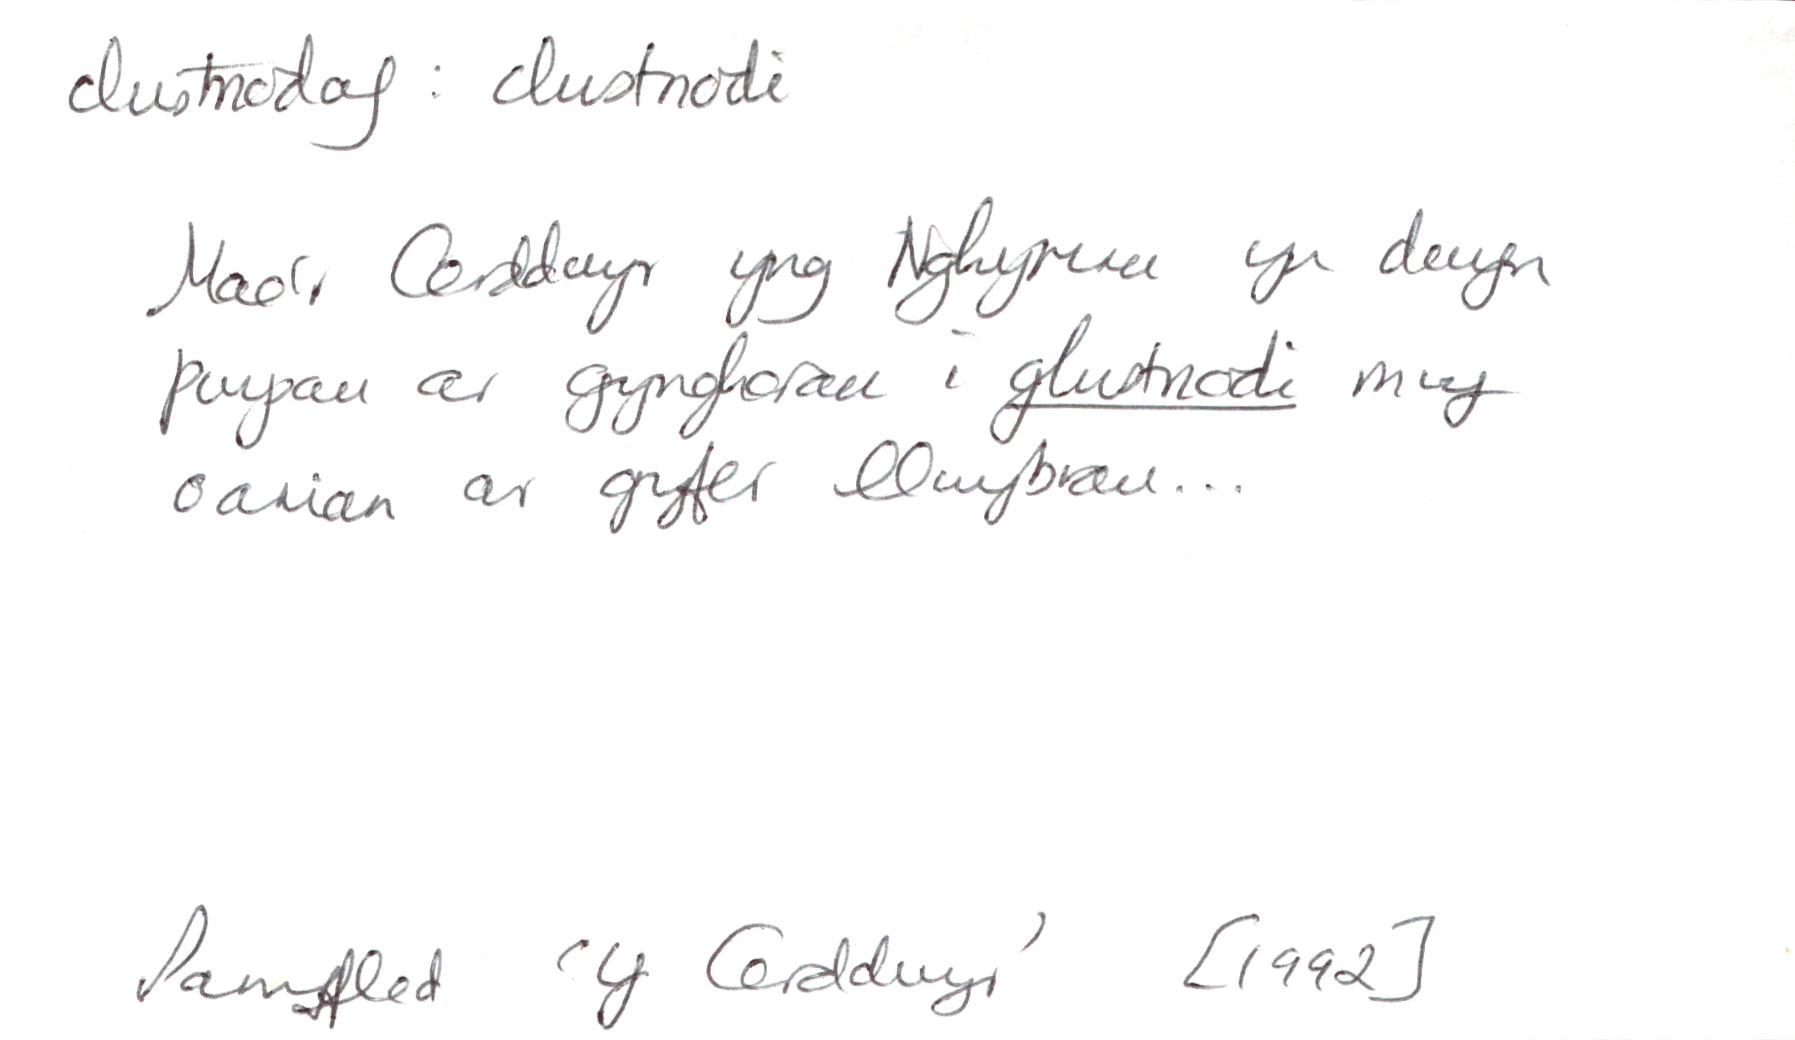 clustnodaf : clustnodi
Mae'r Cerddwyr yng Nghymru yn dwyn
pwysau ar gynghorau i glustnodi mwy
o arian ar gyfer llwybrau...
Pamffled 'Y Cerddwyr' [1992]